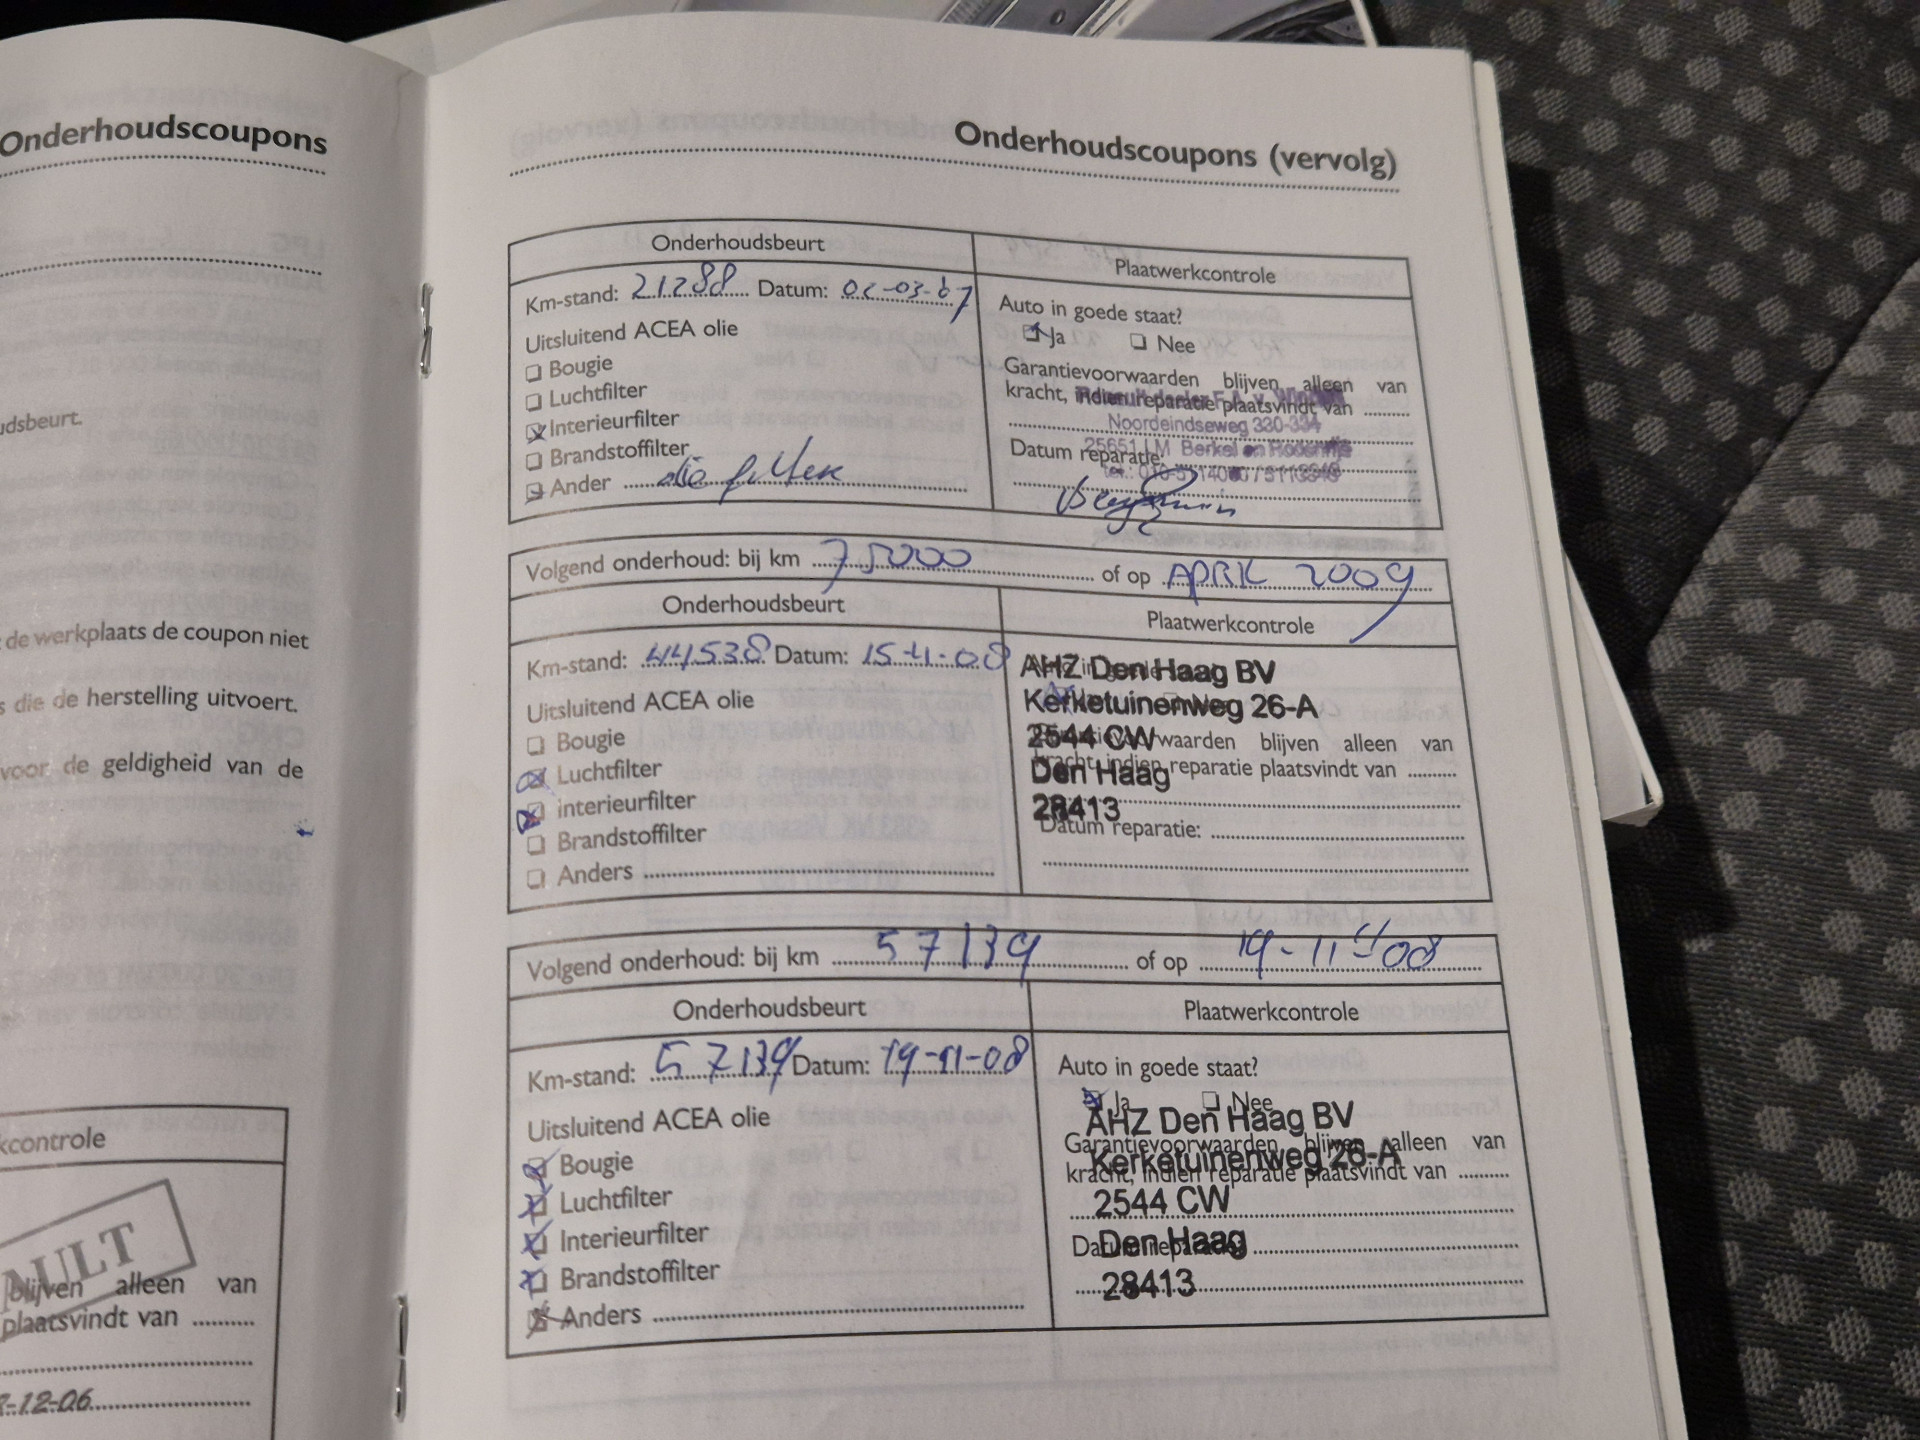 Onderhoudscoupons
udsbeurt.
de werkplaats de coupon niet
s die de herstelling uitvoert.
voor de geldigheid van de
kcontrole
AULT
blijven alleen van
plaatsvindt van ..........
-12-06
Onderhoudscoupons (vervolg)
Onderhoudsbeurt
Plaatwerkcontrole
Km-stand: 21288 Datum: 02-03-07
Uitsluitend ACEA olie
Bougie
Luchtfilter
Interieurfilter
Brandstoffilter
Ander olie filter
Auto in goede staat?
Ja Nee
Garantievoorwaarden blijven alleen van
kracht, indien reparatie plaatsvindt van ..........
Noordeindseweg 330-334
Datum reparatie:
Berkel en Rodenrijs
Volgend onderhoud: bij km 75000 of op APRIL 2009
Onderhoudsbeurt
Plaatwerkcontrole
Km-stand: 44538 Datum: 15-4-08
Uitsluitend ACEA olie
Bougie
Luchtfilter
interieurfilter
Brandstoffilter
Anders
AHZ Den Haag BV
Kerketuinenweg 26-A
2544 CW
Den Haag
28413
Garantievoorwaarden blijven alleen van
kracht, indien reparatie plaatsvindt van ..........
Datum reparatie:
Volgend onderhoud: bij km 57139 of op 19-11-08
Onderhoudsbeurt
Plaatwerkcontrole
Km-stand: 57139 Datum: 19-11-08
Uitsluitend ACEA olie
Bougie
Luchtfilter
Interieurfilter
Brandstoffilter
Anders
Auto in goede staat?
Ja Nee
AHZ Den Haag BV
Garantievoorwaarden blijven alleen van
Kerketuinenweg 26-A
kracht, indien reparatie plaatsvindt van ..........
2544 CW
Datum reparatie:
Den Haag
28413